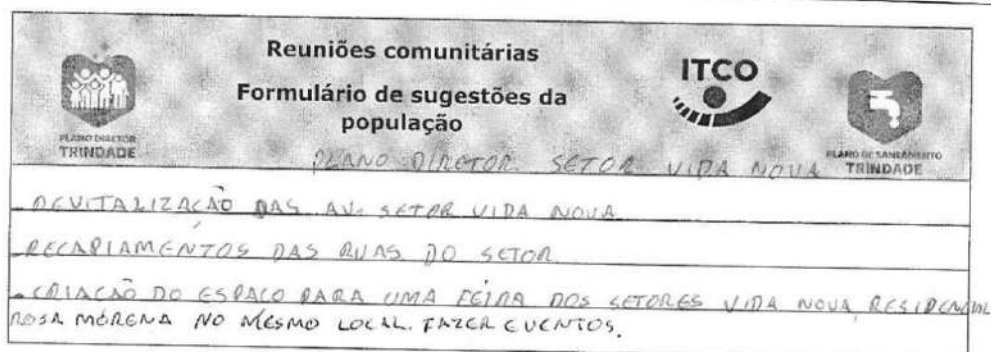 Reuniões comunitárias
Formulário de sugestões da
população
ITCO
PLANO DIRETOR
TRINDADE
PLANO DE SANEAMENTO
TRINDADE
PLANO DIRETOR SETOR VIDA NOVA
- REVITALIZAÇÃO DAS AV. SETOR VIDA NOVA
- RECAPIAMENTOS DAS RUAS DO SETOR
- CRIAÇÃO DO ESPAÇO PARA UMA FEIRA DOS SETORES VIDA NOVA, RESIDENCIAL
ROSA MORENA NO MESMO LOCAL. FAZER EVENTOS.